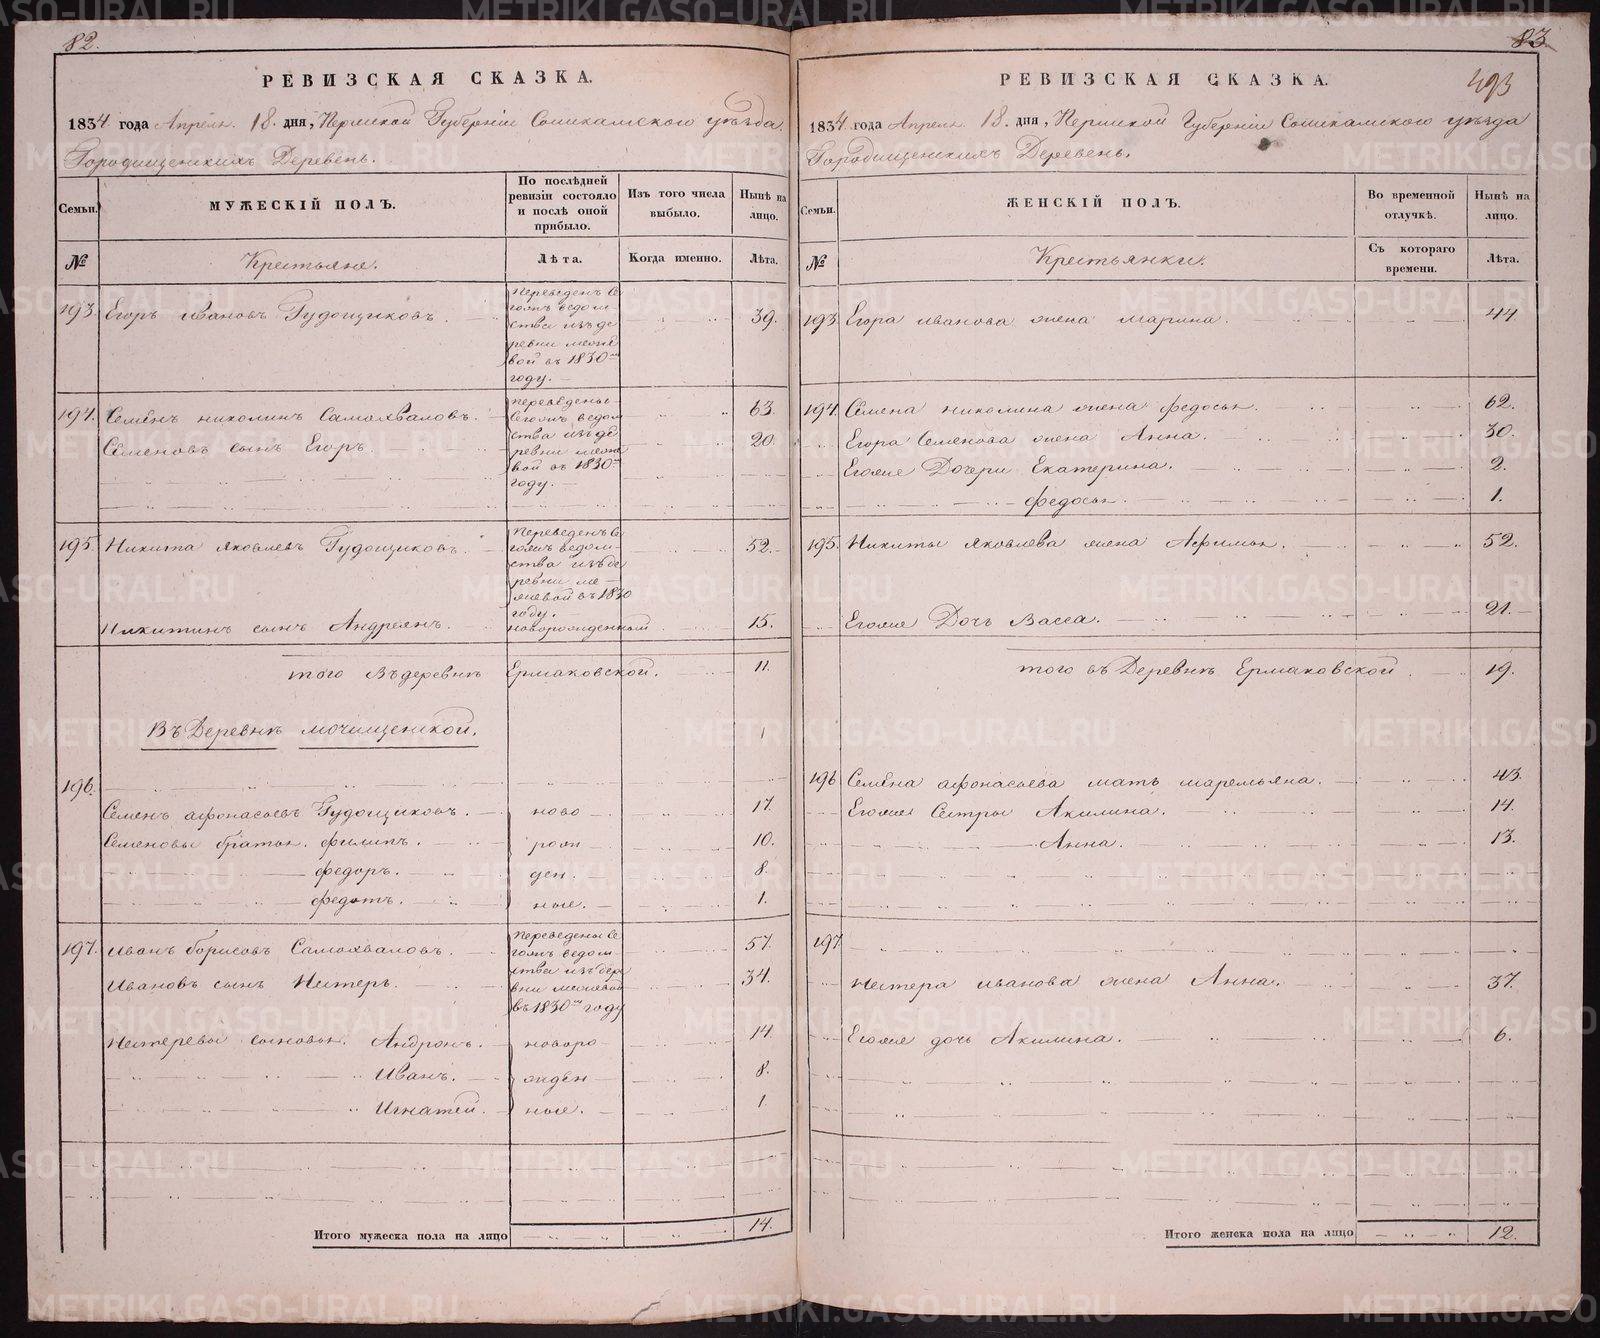 82.
РЕВИЗСКАЯ СКАЗКА.
1834 года Апреля 18. дня, Пермской Губерніи Соликамского уѣзда
Городищенскихъ Деревень.
Семьи. МУЖЕСКІЙ ПОЛЪ. По послѣдней ревизіи состояло и послѣ оной прибыло. Изъ того числа выбыло. Нынѣ на лицо.
№ Крестьяне. Лѣта. Когда именно. Лѣта.
193. Егоръ ивановъ Гудощиковъ. 39.
Переведенъ се
гомъ ведом
ства изъ де
ревни
вой въ 1830мъ
году.
194. Семёнъ николинъ Самохваловъ. 63.
Семеновъ сынъ Егоръ. 20.
переведены
сегомъ ведом
ства изъ де
ревни
вой въ 1830м
году.
195. Никита Яковлевъ Гудощиковъ. 52.
Переведенъ се
гомъ ведом-
ства изъ де
ревни
въ 1830
году.
Никитинъ сынъ Андреянъ. новорожденный 15.
того въ деревнѣ Ермаковской. 11.
Въ Деревнѣ мочищенской.
196.
Семенъ афонасьевъ Гудощиковъ. ново 17.
Семеновы братья. филипъ. рож 10.
федоръ. ден. 8.
федотъ. ные. 1.
197. иванъ борисовъ Самохваловъ. 57.
Ивановъ сынъ Нестеръ. 34.
Переведены се
гомъ ведом
ства изъ дере
вни
въ 1830мъ году
Нестеревы сыновья. Андронъ. новоро 14.
Иванъ. жден 8.
Игнатей. ные. 1.
Итого мужеска пола на лицо 14.
83
493
РЕВИЗСКАЯ СКАЗКА.
1834 года Апреля 18. дня, Пермской Губерніи Соликамского уѣзда
Городищенскихъ Деревень.
Семьи. ЖЕНСКІЙ ПОЛЪ. Во временной отлучкѣ. Нынѣ на лицо.
№ Крестьянки. Съ котораго времени. Лѣта.
193. Егора иванова жена марина. 44
194. Семена николина жена федосья. 62.
Егора Семенова жена Анна. 30.
Егоже Дочери Екатерина. 2.
федосья. 1.
195. Никиты Яковлева жена Афимья. 52.
Егоже Дочь Васса. 21.
того въ Деревнѣ Ермаковской. 19.
196 Семёна афонасьева мать маремьяна. 43.
Егоже Сестры Акилина. 14.
Анна. 13.
197
Нестера иванова жена Анна. 37.
Егоже дочь Акилина. 6.
Итого женска пола на лицо 12.
METRIKI.GASO-URAL.RU